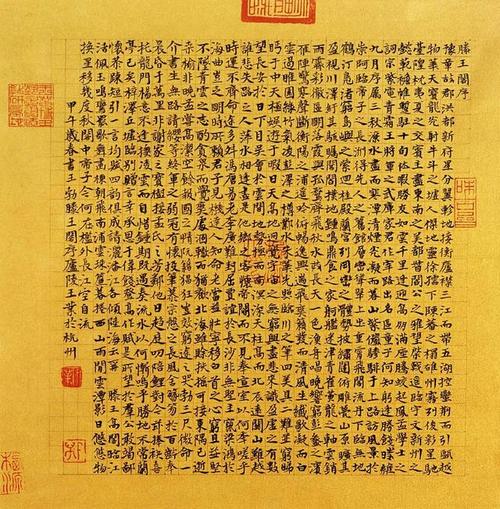 滕王閣序
豫章故郡洪都新府星分翼軫地接衡廬襟三江而帶五湖控蠻荊而引甌越
物華天寶龍光射牛斗之墟人傑地靈徐孺下陳蕃之榻雄州霧列俊彩星馳
臺隍枕夷夏之交賓主盡東南之美都督閻公之雅望棨戟遙臨宇文新州之
懿範襜帷暫駐十旬休暇勝友如雲千里逢迎高朋滿座騰蛟起鳳孟學士之
詞宗紫電青霜王將軍之武庫家君作宰路出名區童子何知躬逢勝餞時維
九月序屬三秋潦水盡而寒潭清煙光凝而暮山紫儼驂騑於上路訪風景於
崇阿臨帝子之長洲得仙人之舊館層巒聳翠上出重霄飛閣流丹下臨無地
鶴汀鳧渚窮島嶼之縈迴桂殿蘭宮列岡巒之體勢披繡闥俯雕甍山原曠其
盈視川澤紆其駭矚閭閻撲地鐘鳴鼎食之家舸艦迷津青雀黃龍之軸雲銷
雨霽彩徹區明落霞與孤鶩齊飛秋水共長天一色漁舟唱晚響窮彭蠡之濱
雁陣驚寒聲斷衡陽之浦遙吟俯暢逸興遄飛爽籟發而清風生纖歌凝而白
雲遏睢園綠竹氣凌彭澤之樽鄴水朱華光照臨川之筆四美具二難並窮睇
眄於中天極娛遊於暇日天高地迥覺宇宙之無窮興盡悲來識盈虛之有數
望長安於日下目吳會於雲間地勢極而南溟深天柱高而北辰遠關山難越
誰悲失路之人萍水相逢盡是他鄉之客懷帝閽而不見奉宣室以何年嗟乎
時運不齊命途多舛馮唐易老李廣難封屈賈誼於長沙非無聖主竄梁鴻於
海曲豈乏明時所賴君子見機達人知命老當益壯寧移白首之心窮且益堅
不墜青雲之志酌貪泉而覺爽處涸轍而猶歡北海雖賒扶搖可接東隅已逝
桑榆非晚孟嘗高潔空餘報國之情阮籍猖狂豈效窮途之哭勃三尺微命一
介書生無路請纓等終軍之弱冠有懷投筆慕宗愨之長風舍簪笏於百齡奉
晨昏於萬里非謝家之寶樹接孟氏之芳鄰他日趨庭叨陪鯉對今茲捧袂喜
托龍門楊意不逢撫凌雲而自惜鍾期既遇奏流水以何慚嗚乎勝地不常蘭
亭已矣梓澤丘墟臨別贈言幸承恩於偉餞登高作賦是所望於群公敢竭鄙
懷恭疏短引一言均賦四韻俱成請灑潘江各傾陸海云爾 滕王高閣臨江
渚佩玉鳴鸞罷歌舞畫棟朝飛南浦雲珠簾暮捲西山雨閒雲潭影日悠悠物
換星移幾度秋閣中帝子今何在檻外長江空自流
甲午歲春書王勃滕王閣序廬陵王業於杭州